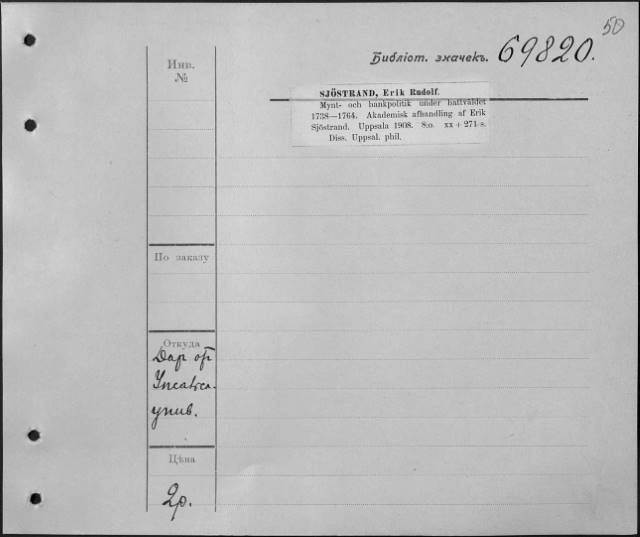 50
Библіот. значекъ. 69820.
Инв.
№
SJÖSTRAND, Erik Rudolf.
Mynt- och bankpolitik under hattväldet
1738—1764. Akademisk afhandling af Erik
Sjöstrand. Uppsala 1908. 8:o. xx + 271 s.
Diss. Uppsal. phil.
По заказу
Откуда
Дар от
унив.
Цѣна
2р.